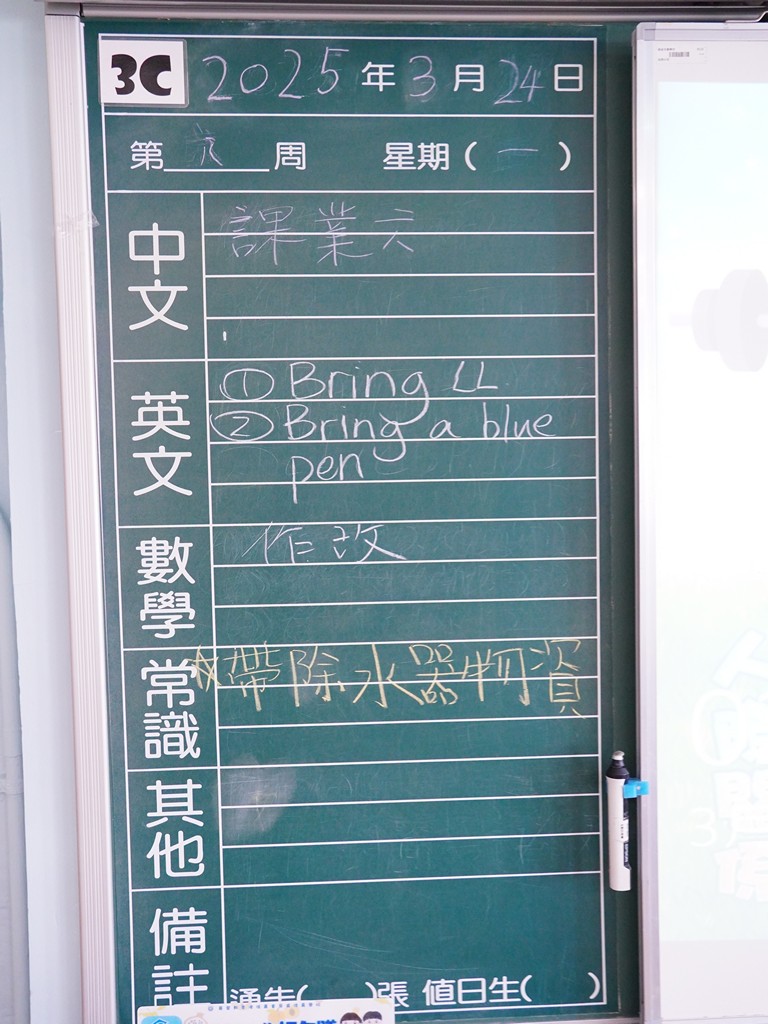 3C 2025年3月24日
第六周 星期(一)
中文 課業六
英文 ① Bring LL
② Bring a blue
pen
數學 作改
常識 ☆帶除水器物資
其他
備註
通告( )張 值日生( )